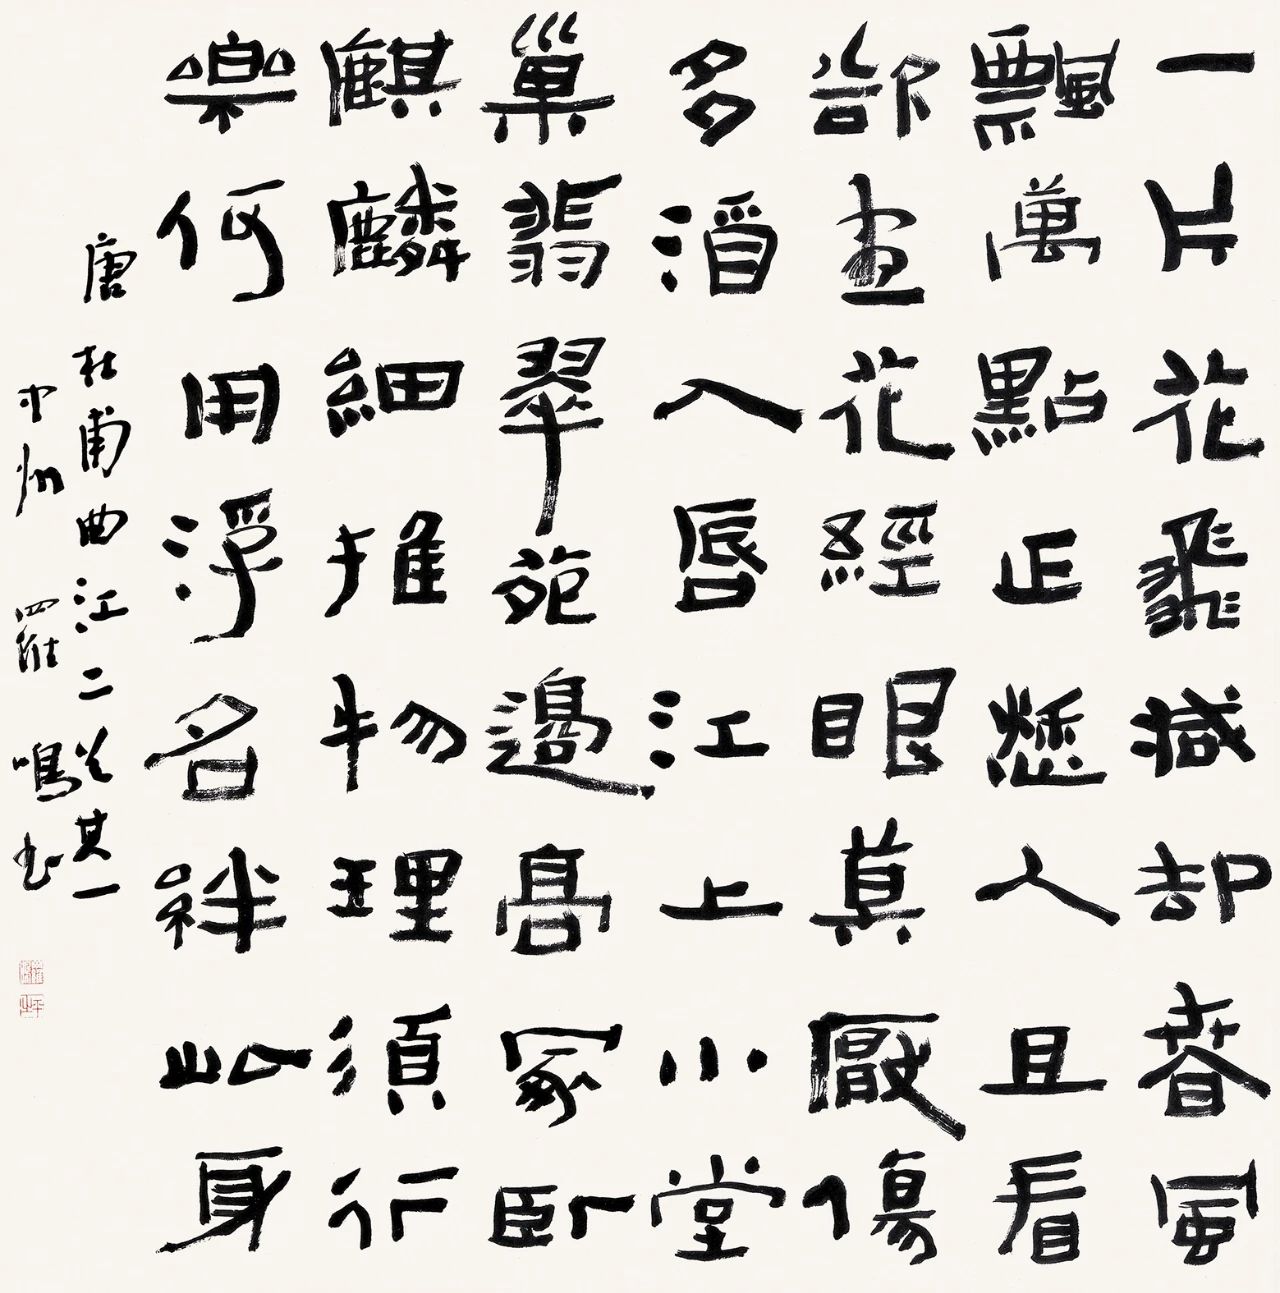 一片花飛減却春風
飄萬點正愁人且看
欲盡花經眼莫厭傷
多酒入唇江上小堂
巢翡翠苑邊高冢卧
麒麟細推物理須行
樂何用浮名絆此身
唐杜甫曲江二首其一
中州羅鳴书